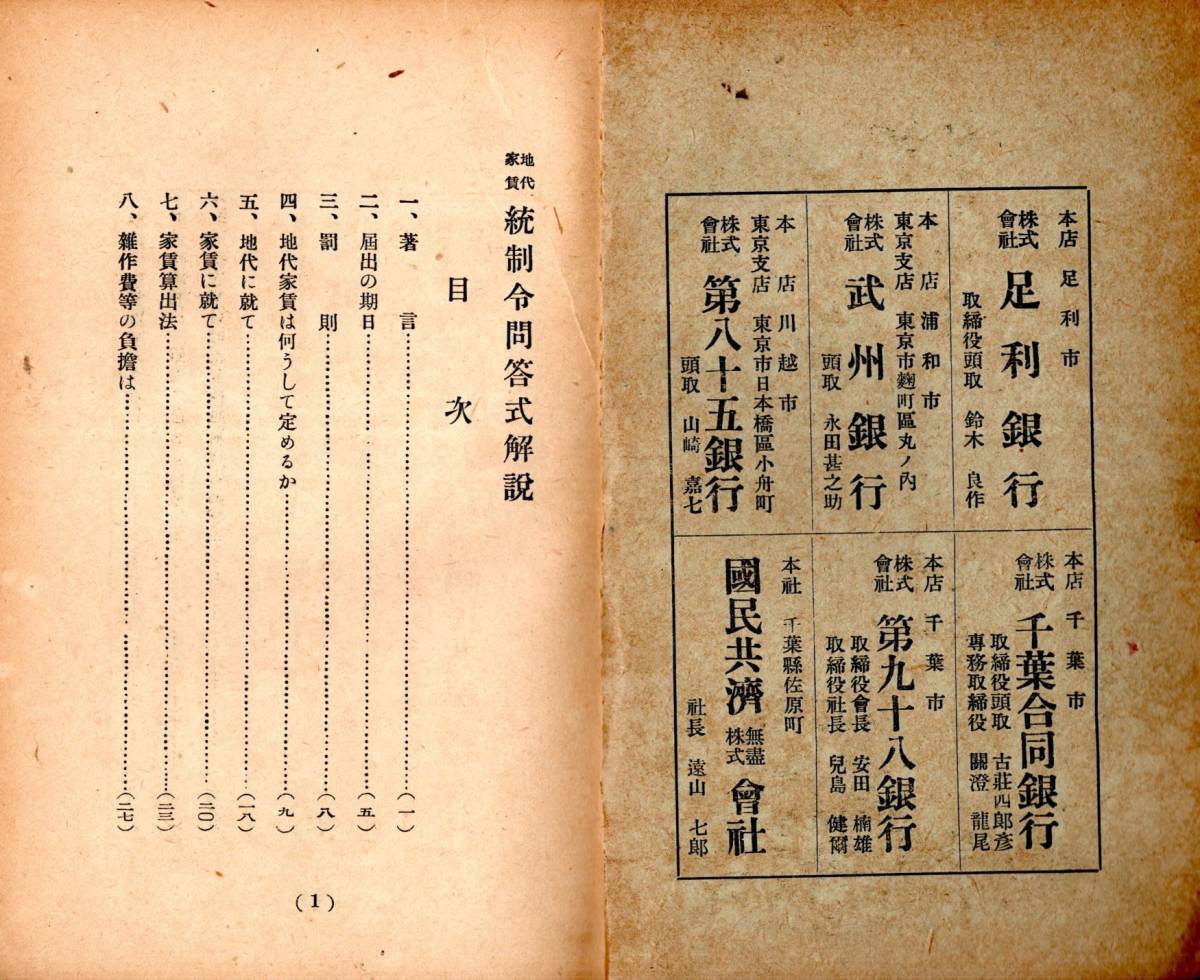 本店 足利市
株式會社 足利銀行
取締役頭取 鈴木良作
本店 浦和市
東京支店 東京市麴町區丸ノ內
株式會社 武州銀行
頭取 永田甚之助
本店 川越市
東京支店 東京市日本橋區小舟町
株式會社 第八十五銀行
頭取 山崎嘉七
本店 千葉市
株式會社 千葉合同銀行
取締役頭取 古莊四郎彥
專務取締役 關澄龍尾
本店 千葉市
株式會社 第九十八銀行
取締役會長 安田楠雄
取締役社長 兒島健爾
本社 千葉縣佐原町
國民共濟無盡株式會社
社長 遠山七郎
地代家賃 統制令問答式解說
目次
一、著言……(一)
二、屆出の期日……(五)
三、罰則……(八)
四、地代家賃は何うして定めるか……(九)
五、地代に就て……(一八)
六、家賃に就て……(二〇)
七、家賃算出法……(二三)
八、雜作費等の負擔は……(二七)
(1)